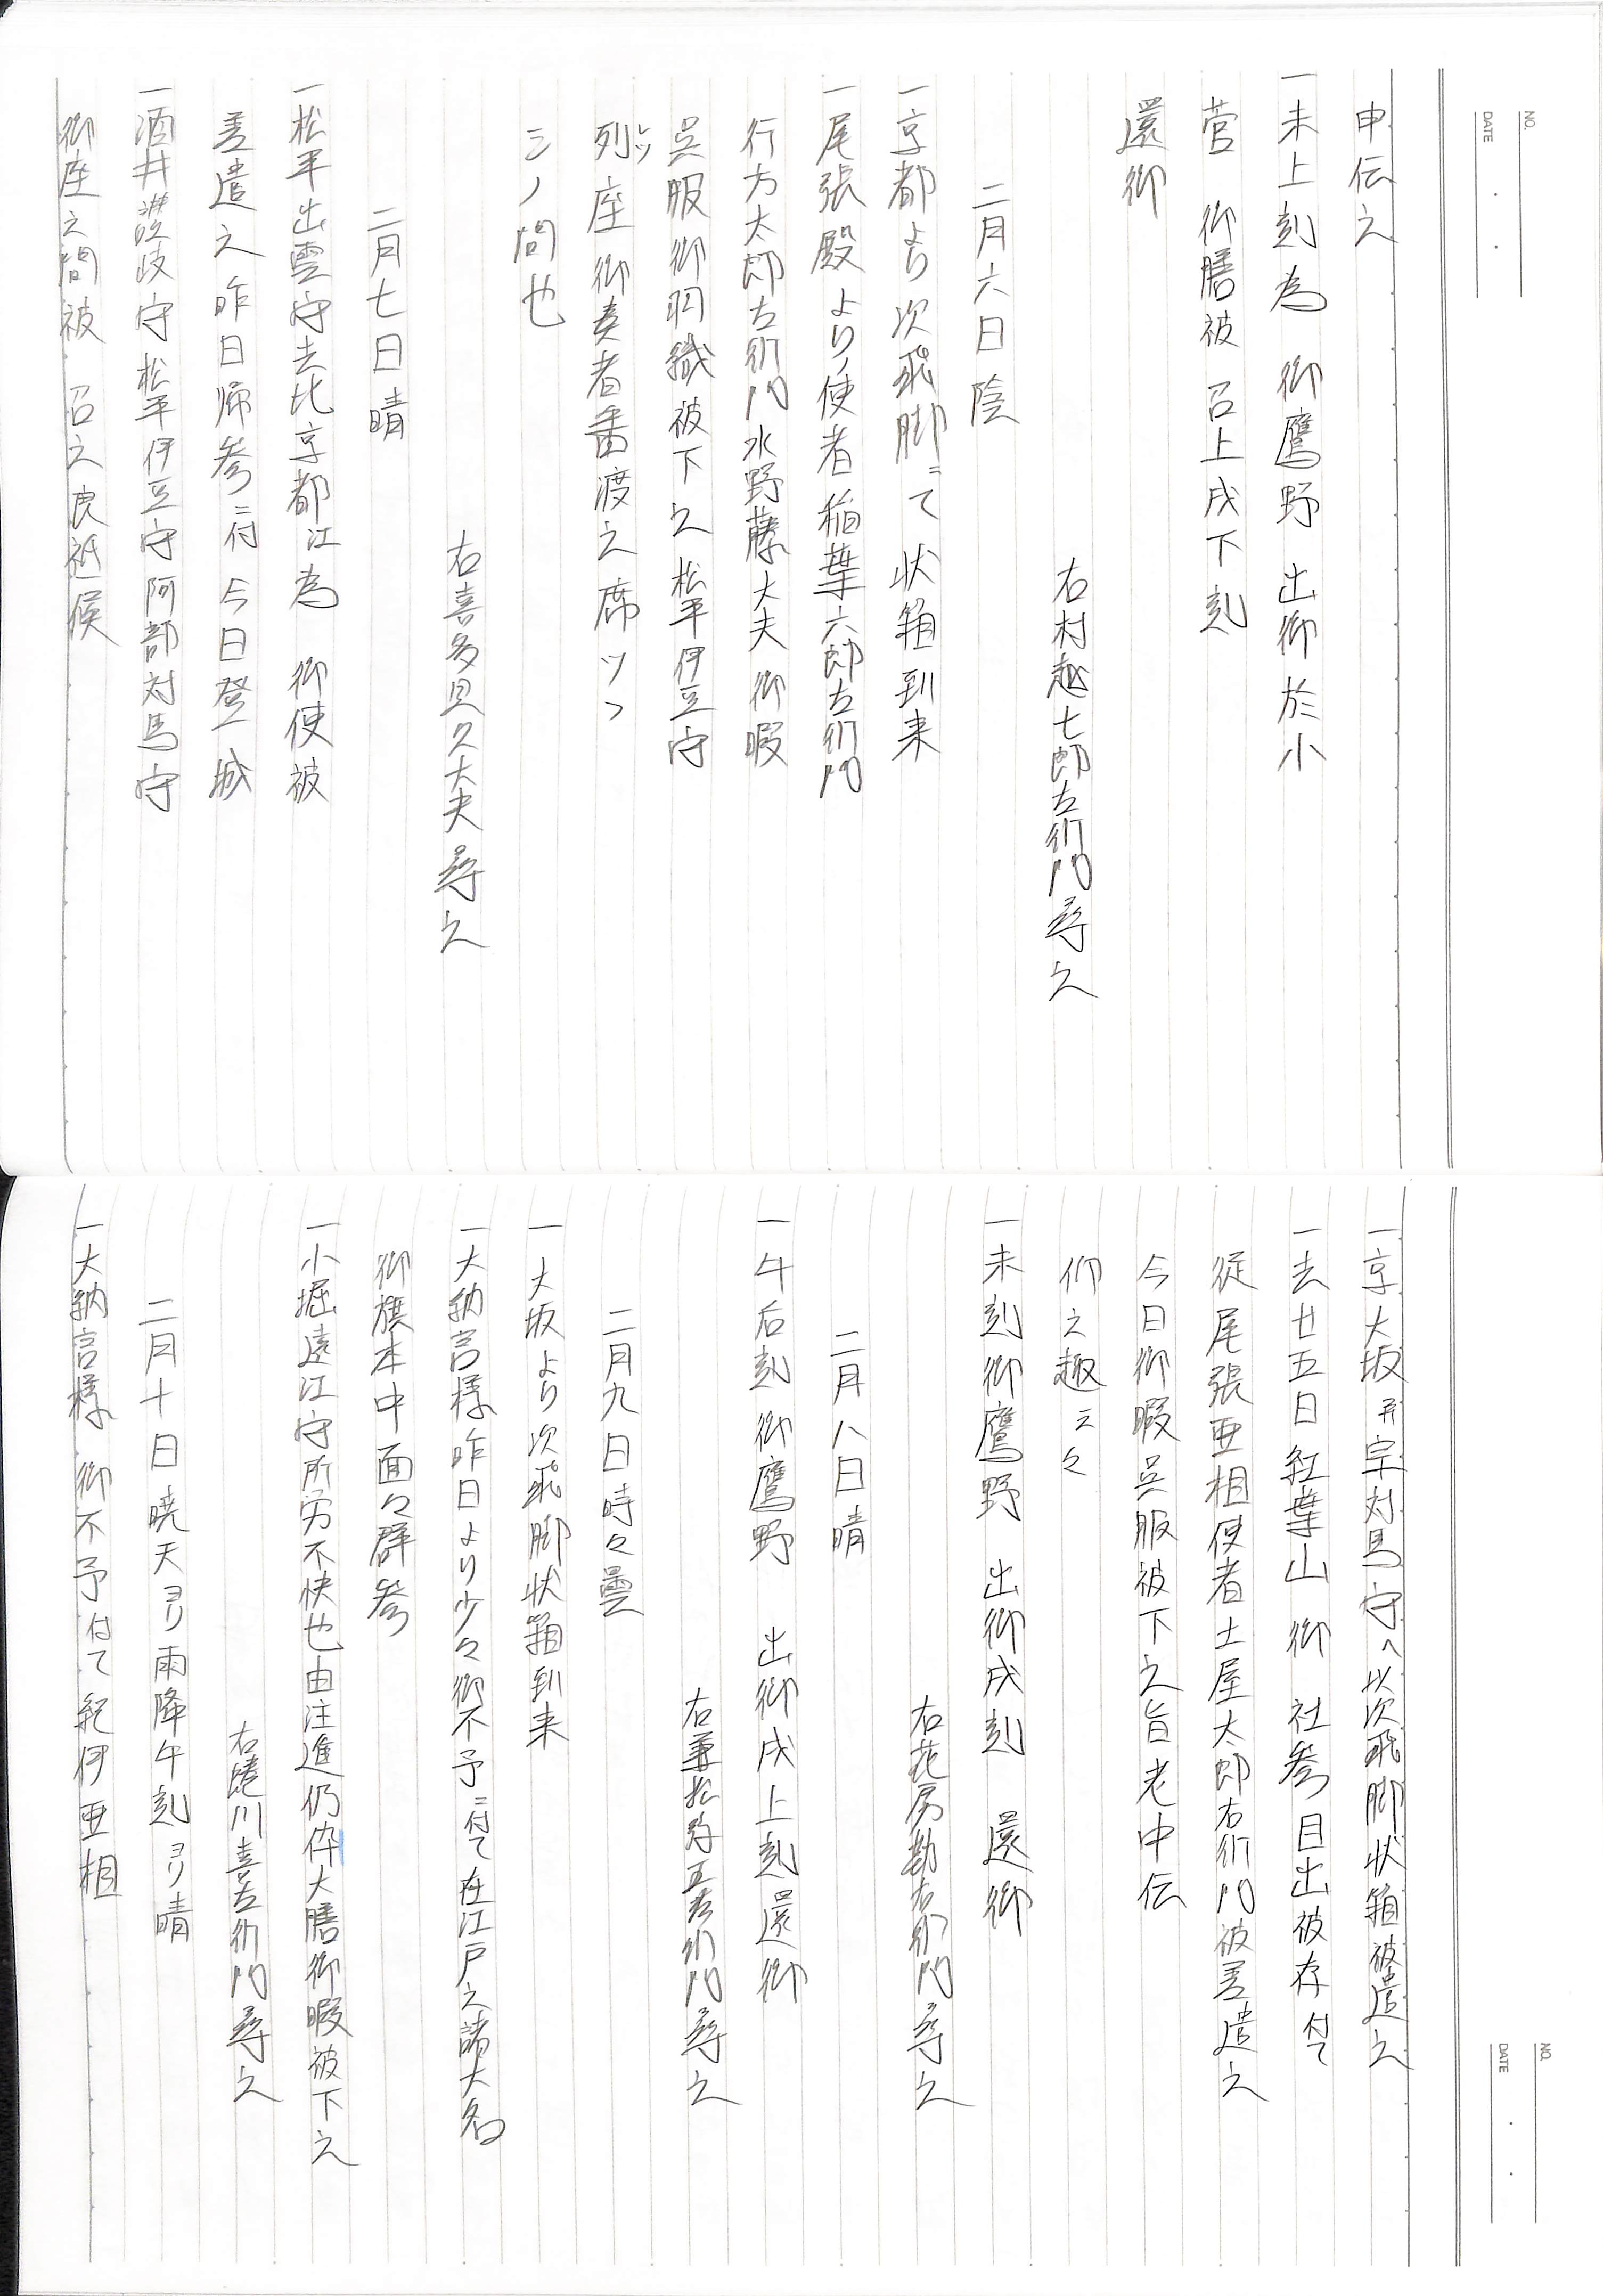 NO.
DATE
申伝之
一未上刻為 御鷹野 出御於小
菅 御膳被 召上戌下刻
還御
右村越七郎左衛門尋之
二月六日陰
一京都より次飛脚ニて状箱到来
一尾張殿より使者稲葉六郎左衛門
行方太郎左衛門水野藤大夫御暇
呉服御羽織被下之松平伊豆守
列座御奏者番渡之席ツフ
レツ
シノ間也
右喜多見久大夫尋之
二月七日晴
一松平出雲守去比京都江為 御使被
差遣之昨日帰参ニ付今日登城
一酒井讃岐守松平伊豆守阿部対馬守
御座之間被 召之良祗候
NO.
DATE
一京大坂并宗対馬守へ以次飛脚状箱被遣之
一去廿五日紅葉山 御 社参目出被存付て
従尾張亜相使者土屋太郎右衛門被差遣之
今日御暇呉服被下之旨老中伝
仰之趣云々
一未刻御鷹野 出御戌刻 還御
右花房勘右衛門尋之
二月八日晴
一午后刻御鷹野 出御戌上刻還御
右兼松弥五左衛門尋之
二月九日時々曇
一大坂より次飛脚状箱到来
一大納言様昨日より少々御不予ニ付て在江戸之諸大名
御旗本中面々群参
一小堀遠江守所労不快也由注進仍伜大膳御暇被下之
右蜷川喜左衛門尋之
二月十日暁天ヨリ雨降午刻ヨリ晴
一大納言様 御不予付て紀伊亜相